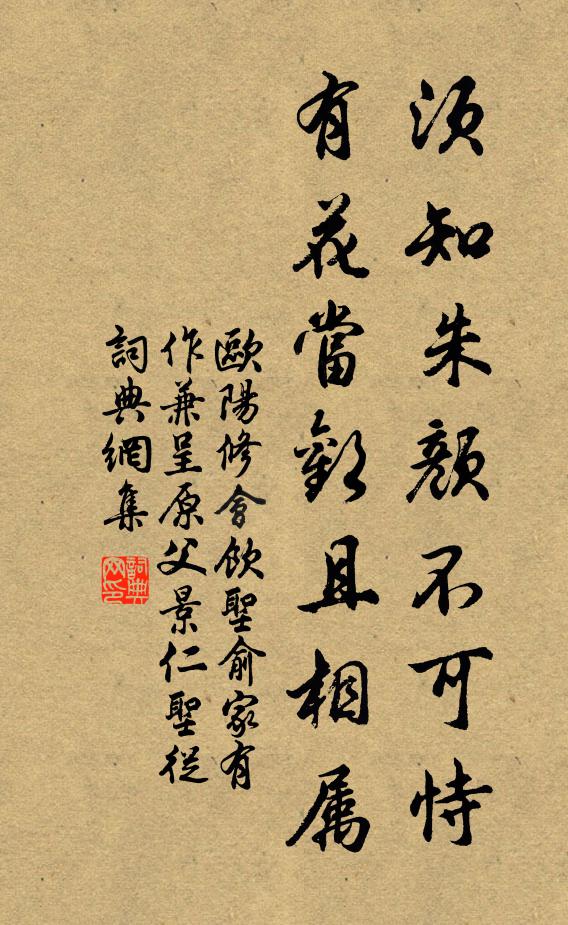 须知朱顔不可恃
有花當歡且相属
歐陽修會飲聖俞家有
作兼呈原父景仁聖從
詞典網集
詞典网印